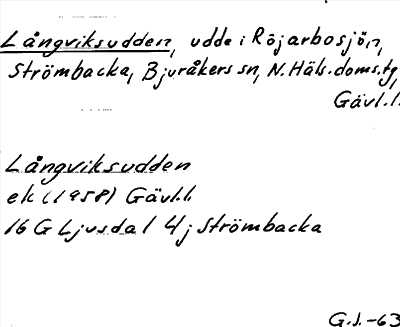 Långviksudden, udde i Röjarbosjön,
Strömbacka, Bjuråkers sn, N. Häls. doms.tg,
Gävl.l.
Långviksudden
ek (1958) Gävl.l.
16 G Ljusdal 4j Strömbacka
G.J.-63